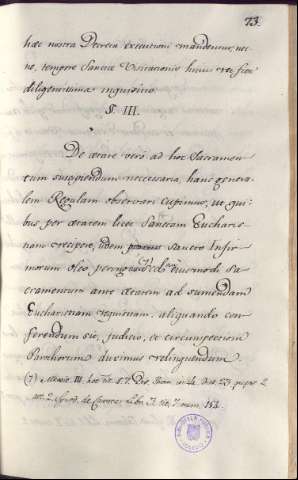 73.
hæc nostra Decreta executioni mandentur, nec
ne, tempore Sanctæ Visitationis huius rei fiet
diligentissima inquisitio.
§. III.
De ætate verò ad hoc Sacramen-
tum suscipiendum necessaria, hanc genera-
lem Regulam observari cupimus, ut qui-
bus per ætatem licet Sanctam Eucharis-
tiam recipere, idem sancto Infir-
morum oleo perungantur eiusmodi Sa-
cramentum ante ætatem ad sumendam
Eucharistiam requisitam, aliquando con-
ferendum sit, judicio, et circumspectioni
Parochorum duximus relinquendum.
(7)